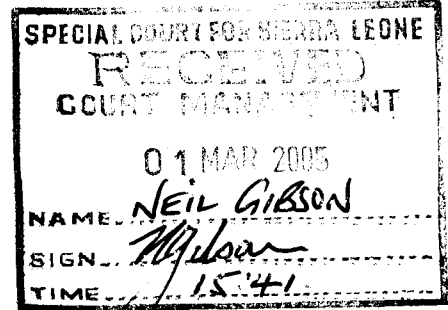 SPECIAL COURT FOR SIERRA LEONE
RECEIVED
COURT MANAGEMENT
01 MAR 2005
NAME NEIL GIBSON
SIGN NGibson
TIME 15:41